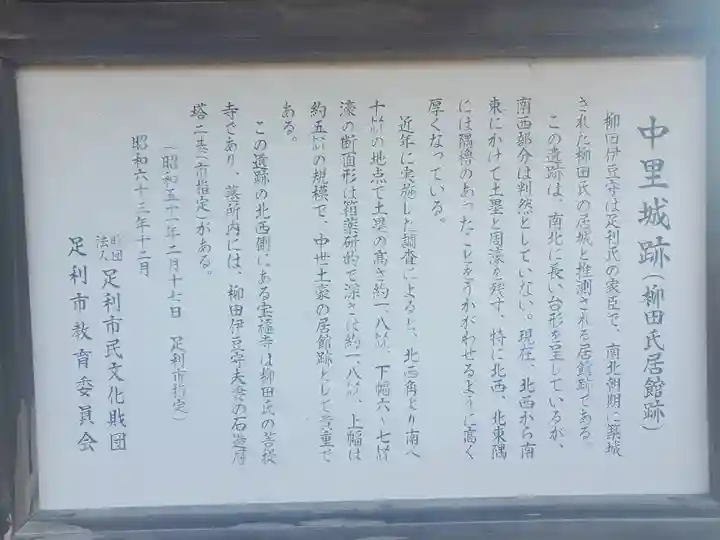 中里城跡(柳田氏居館跡)
柳田伊豆守は足利氏の家臣で、南北朝期に築城
された柳田氏の居城と推測される居館跡である。
この遺跡は、南北に長い台形を呈しているが、
南西部分は判然としていない。現在、北西から南
東にかけて土塁と周濠を残す、特に北西、北東隅
には隅櫓のあったことをうかがわせるように高く
厚くなっている。
近年に実施した調査によると、北西角より南へ
十㍍の地点で土塁の高さ約一・八㍍、下幅六〜七㍍
濠の断面形は箱薬研的で深さは約一・八㍍、上幅は
約五㍍の規模で、中世土豪の居館跡として貴重で
ある。
この遺跡の北西側にある宝福寺は柳田氏の菩提
寺であり、墓所内には、柳田伊豆守夫妻の石造層
塔二基(市指定)がある。
(昭和五十二年二月十七日 足利市指定)
昭和六十二年十二月
財団法人 足利市民文化財団
足利市教育委員会